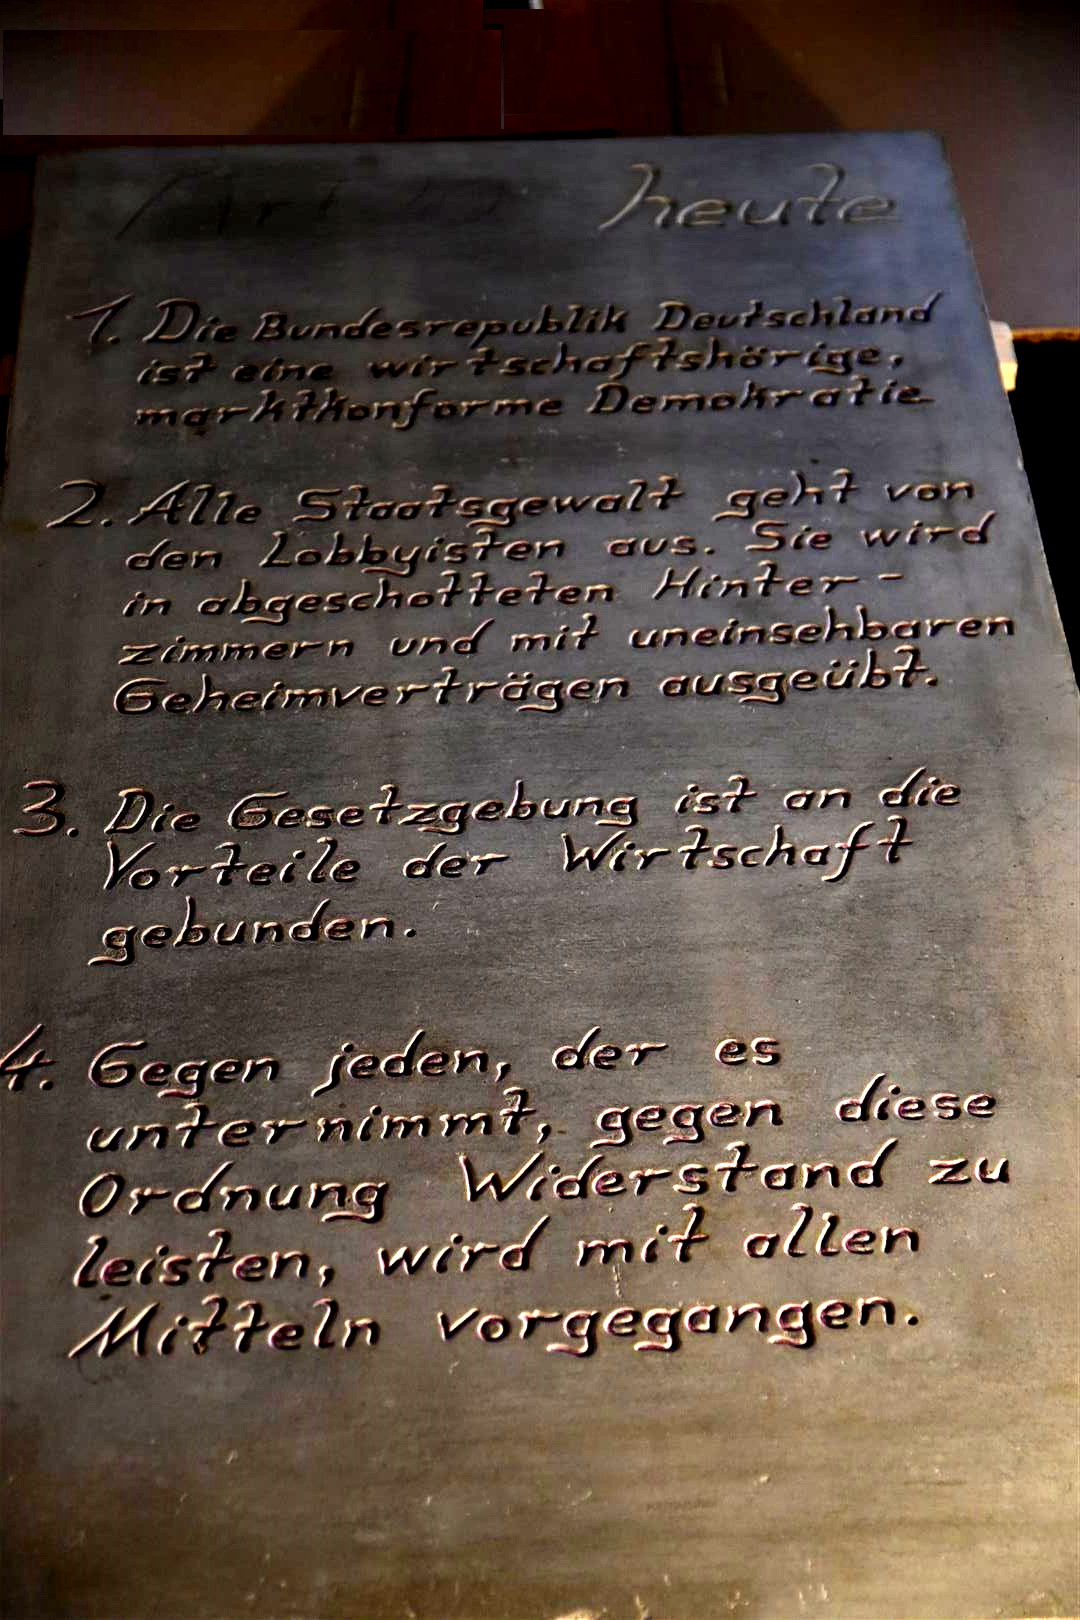 heute
1. Die Bundesrepublik Deutschland
ist eine wirtschaftshörige,
marktkonforme Demokratie
2. Alle Staatsgewalt geht von
den Lobbyisten aus. Sie wird
in abgeschotteten Hinter-
zimmern und mit uneinsehbaren
Geheimverträgen ausgeübt.
3. Die Gesetzgebung ist an die
Vorteile der Wirtschaft
gebunden.
4. Gegen jeden, der es
unternimmt, gegen diese
Ordnung Widerstand zu
leisten, wird mit allen
Mitteln vorgegangen.